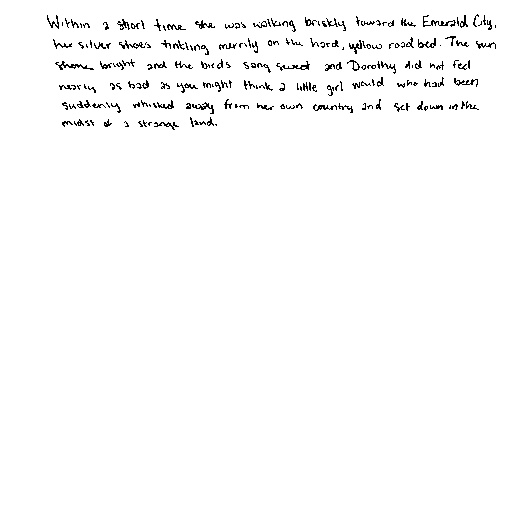 Within a short time she was walking briskly toward the Emerald City,
her silver shoes tinkling merrily on the hard, yellow roadbed. The sun
shone bright and the birds sang sweet and Dorothy did not feel
nearly as bad as you might think a little girl would who had been
suddenly whisked away from her own country and set down in the
midst of a strange land.